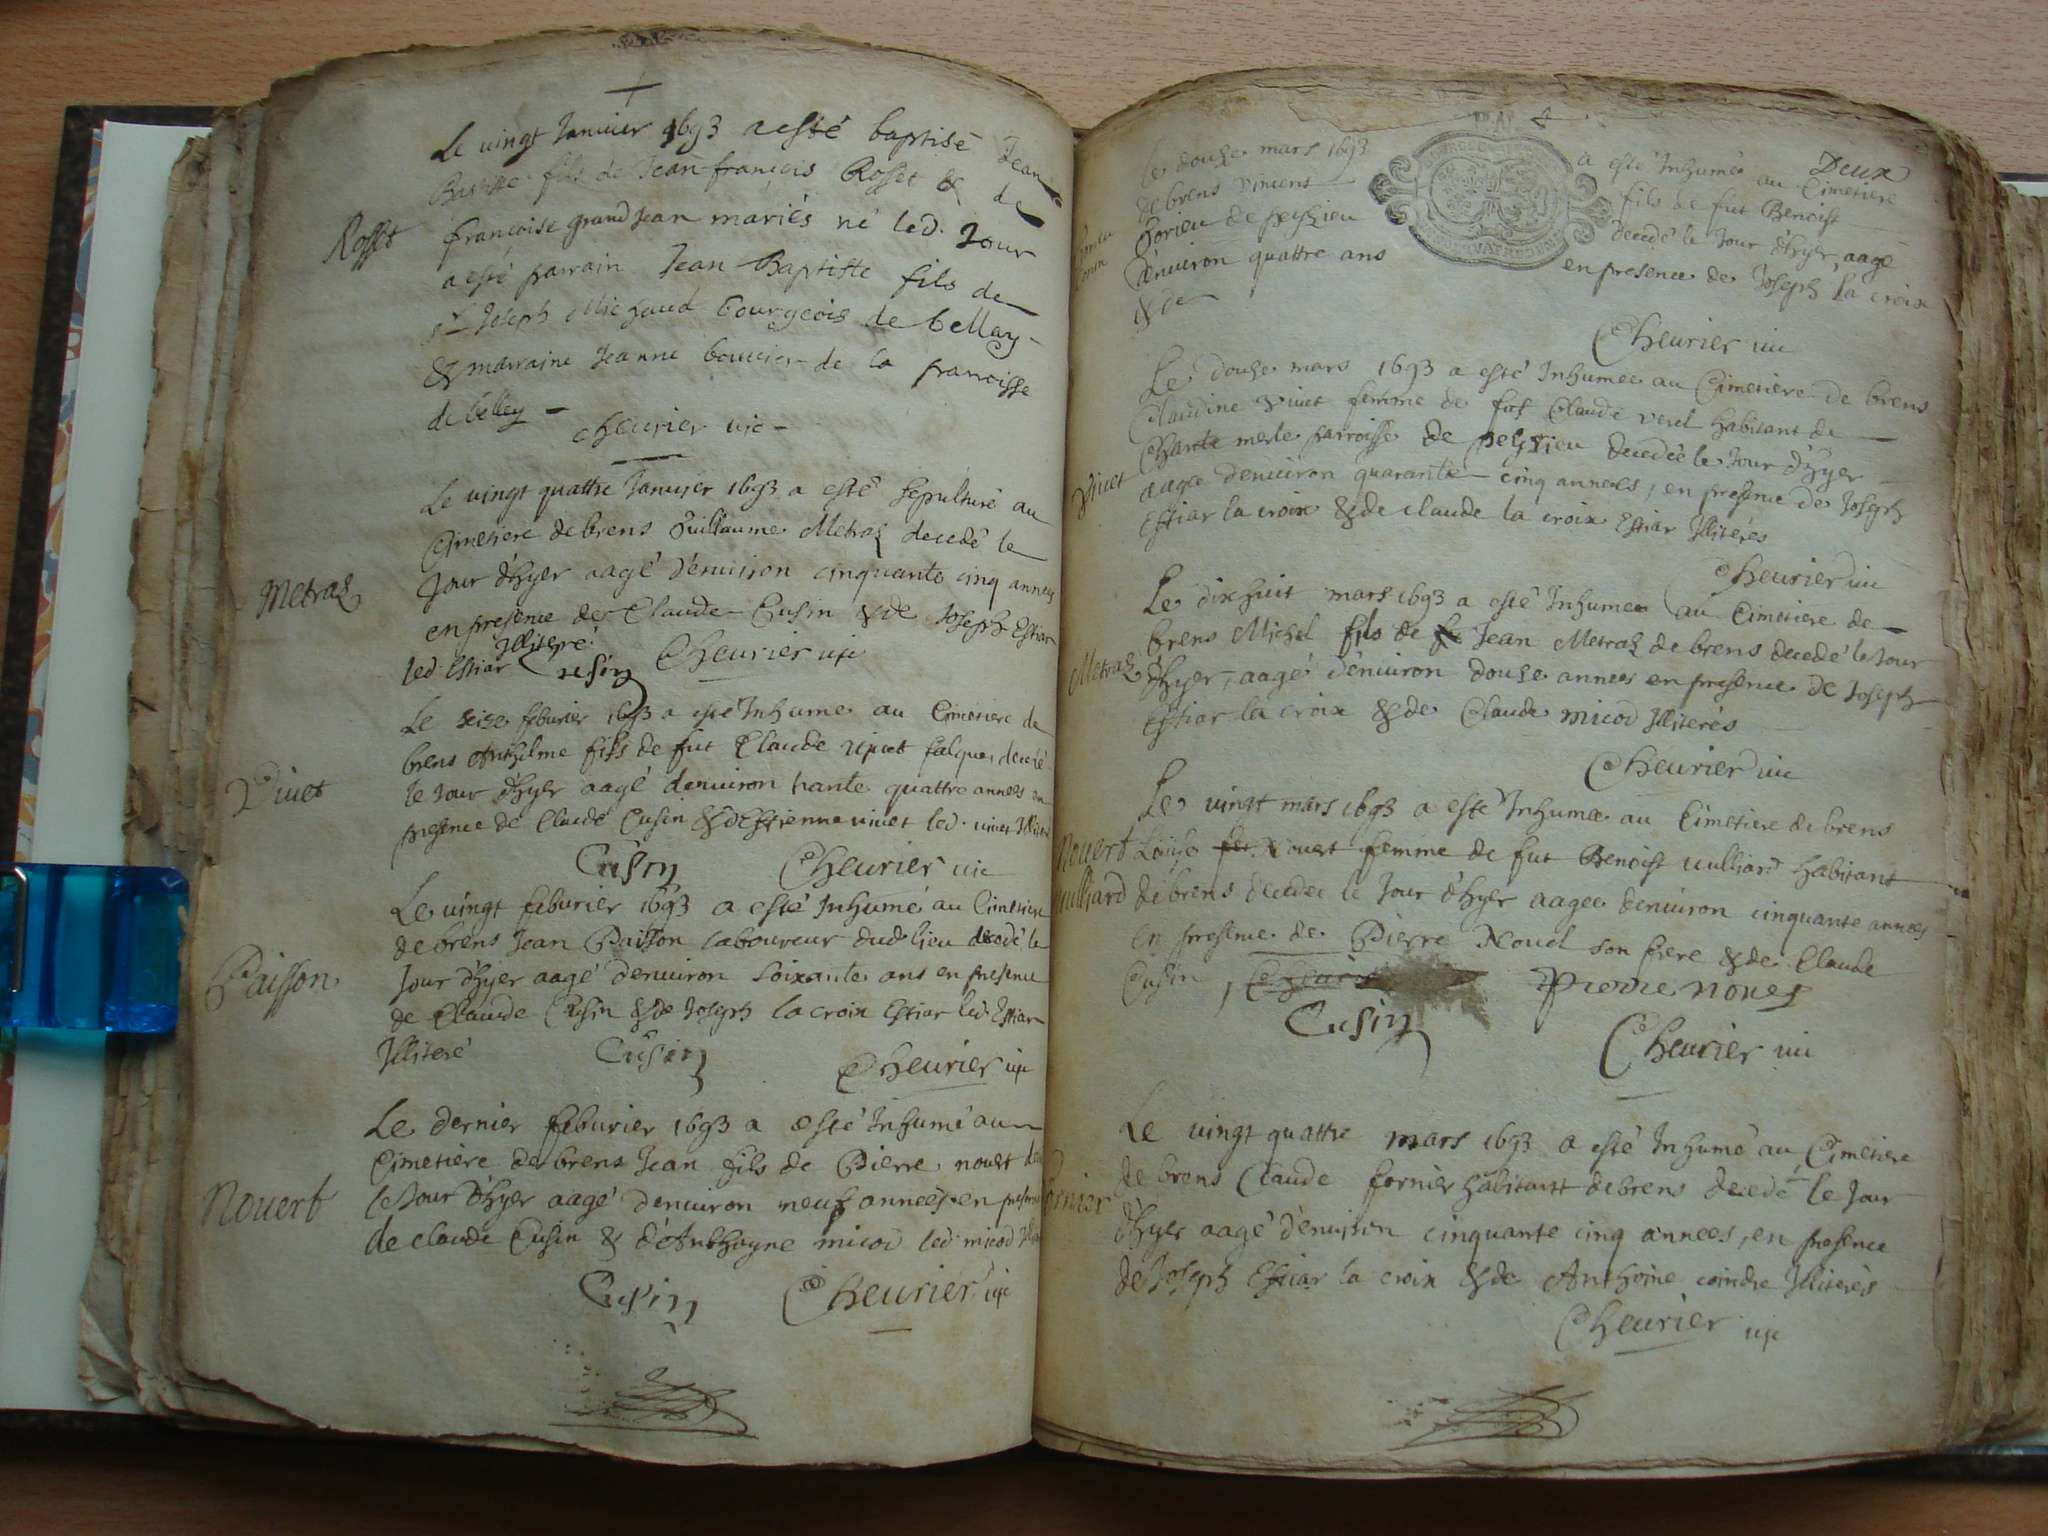 Le vingt Janvier 1693 a esté baptisé Jean
Baptiste fils de Jean-françois Rosset & de
Rosset
françoise grand Jean mariés né led. Jour
a esté parrain Jean Baptiste fils de
Sr Joseph Michaud bourgeois de bellay
& marraine Jeanne bouvier de la parroisse
de belley
Cheurier vic
Le vingt quattre Janvier 1693 a esté sepulturé au
Cimetiere de brens Guillaume Metraz decedé le
Metraz
Jour d'hyer aagé d'enuiron cinquante cinq années
en presence de Claude Cusin & de Joseph Estiar
led Estiar Illiteré Cusin Cheurier vic
Le seize feburier 1693 a esté Inhumé au Cimetiere de
brens Anthelme fils de fut Claude vivet falque decedé
Vivet
le Jour d'hyer aagé denuiron trante quattre années en
presence de Claude Cusin & d'Estienne vivet led. vivet
Cusin Cheurier vic
Le vingt feburier 1693 a esté Inhumé au Cimetiere
de brens Jean Paisson laboureur dud lieu decedé le
Paisson
Jour d'hyer aagé denuiron soixante ans en presence
de Claude Cusin & de Joseph la croix Estiar led. Estiar
Illiteré Cusin Cheurier vic
Le dernier feburier 1693 a esté Inhumé au
Cimetiere de brens Jean fils de Pierre nouet
Nouert
le Jour d'hyer aagé denuiron neuf années en presence
de claude Cusin & d'Anthoyne micod led. micod
Cusin Cheurier vic
Deux
Le douze mars 1693 a esté Inhumé au Cimetiere
de brens Vincens fils de fut Benoist
Gorieu de peyzieu decedé le Jour d'hyer, aagé
d'enuiron quattre ans en presence de Joseph la croix
& de
Cheurier vic
Le douze mars 1693 a esté Inhumee au Cimetiere de brens
Claudine Vivet femme de fut Claude habitant de
Chante merle parroisse de peyzieu decedée le Jour d'hyer
Vivet
aagée denuiron quarante cinq années, en presence de Joseph
Estiar la croix & de claude la croix Estiar Illiterés
Cheurier vic
Le dixhuit mars 1693 a esté Inhumee au Cimetiere de
brens Michel fils de Jean Metraz de brens decedé le Jour
Metraz
d'hyer, aagé d'enuiron douze annees en presence de Joseph
Estiar la croix & de Claude micod Illiterés
Cheurier vic
Le vingt mars 1693 a esté Inhumee au Cimetiere de brens
Nouert
Louise Nouert femme de fut Benoist vulliard habitant
vulliard
de brens decedee le Jour d'hyer aagee denuiron cinquante annees
en presence de Pierre Nouel son frere & de Claude
Cusin Pierre noues
Cusin
Cheurier vic
Le vingt quattre mars 1693 a esté Inhumé au Cimetiere
de brens Claude fornier habitant de brens decedé le Jour
fornier
d'hyer aagé d'enuiron cinquante cinq annees, en presence
de Joseph Estiar la croix & de Anthoine coindre Illiterés
Cheurier vic